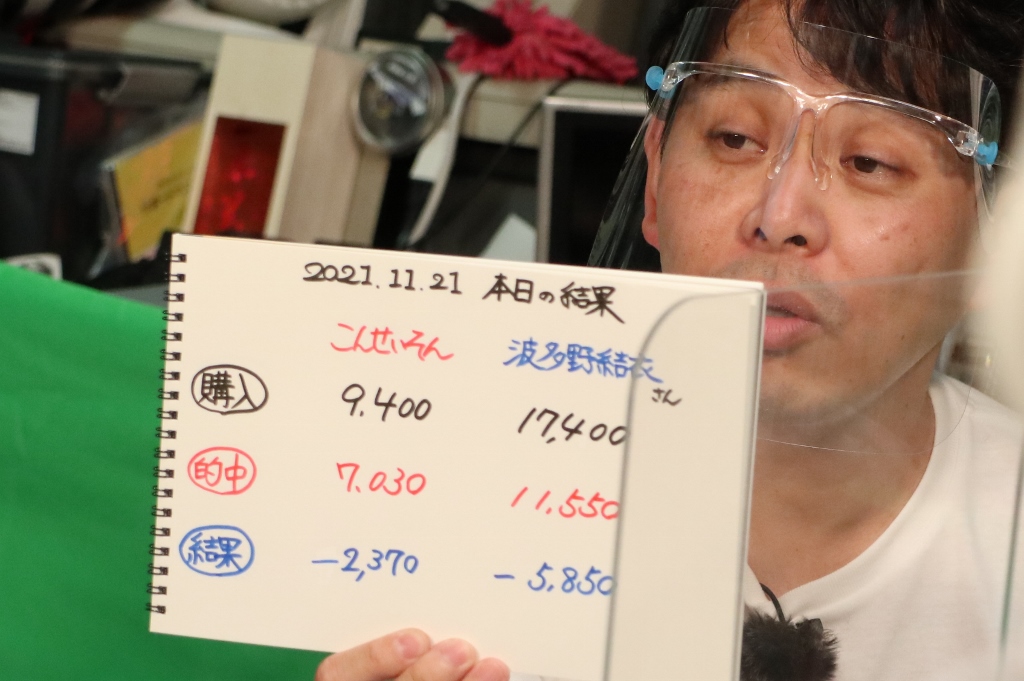 2021.11.21 本日の結果
こんせいそん 波多野結衣さん
購入 9.400 17,400
的中 7.030 11.550
結果 -2,370 -5,850